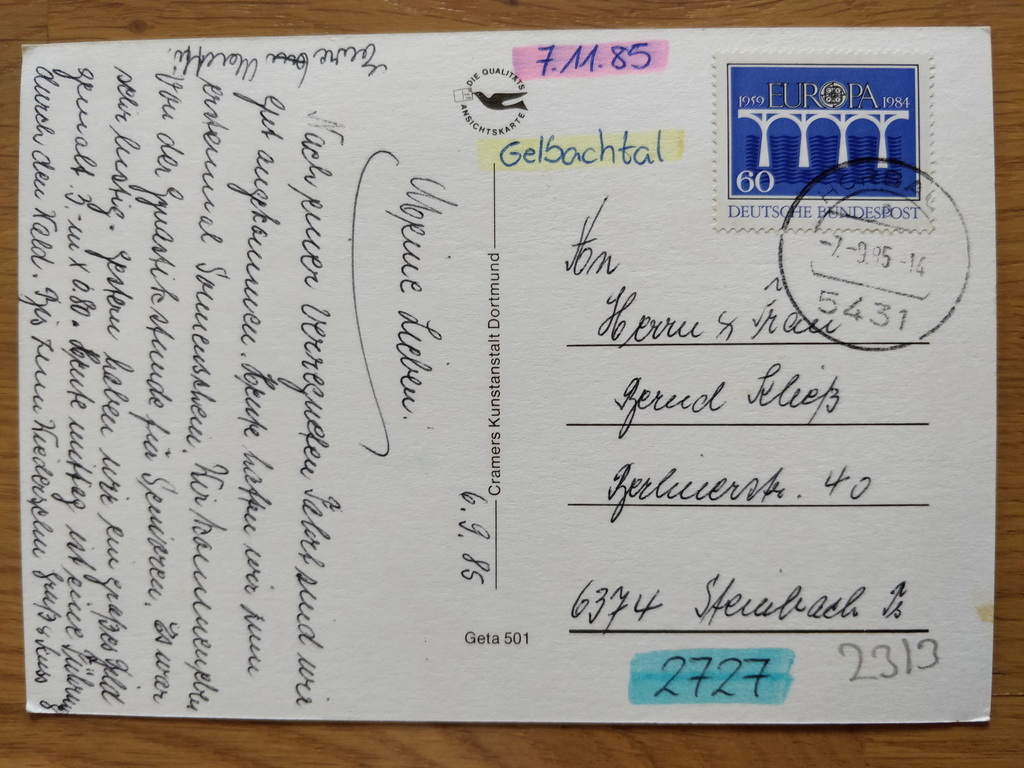 7.11.85
DIE QUALITÄTS
ANSICHTSKARTE
Gelbachtal
1959 EUROPA 1984
60
DEUTSCHE BUNDESPOST
-7.-9.85-14
5431
Meine Lieben.
Nach einer verregneten Fahrt sind wir
gut angekommen. Heute hatten wir zum
erstenmal Sonnenschein. Wir kommen eben
von der Gymnastikstunde für Senioren. Es war
sehr lustig. Gestern haben wir ein großes Bild
gemalt. 3 - m x 0.80. Heute mittag ist eine Führung
durch den Wald. Bis zum Wiedersehen Gruß & Kuss
Eure
6.9.85
Cramers Kunstanstalt Dortmund
Geta 501
An
Herrn & Frau
Bernd Kließ
Berlinerstr. 40
6374 Steinbach Ts
2727
2313